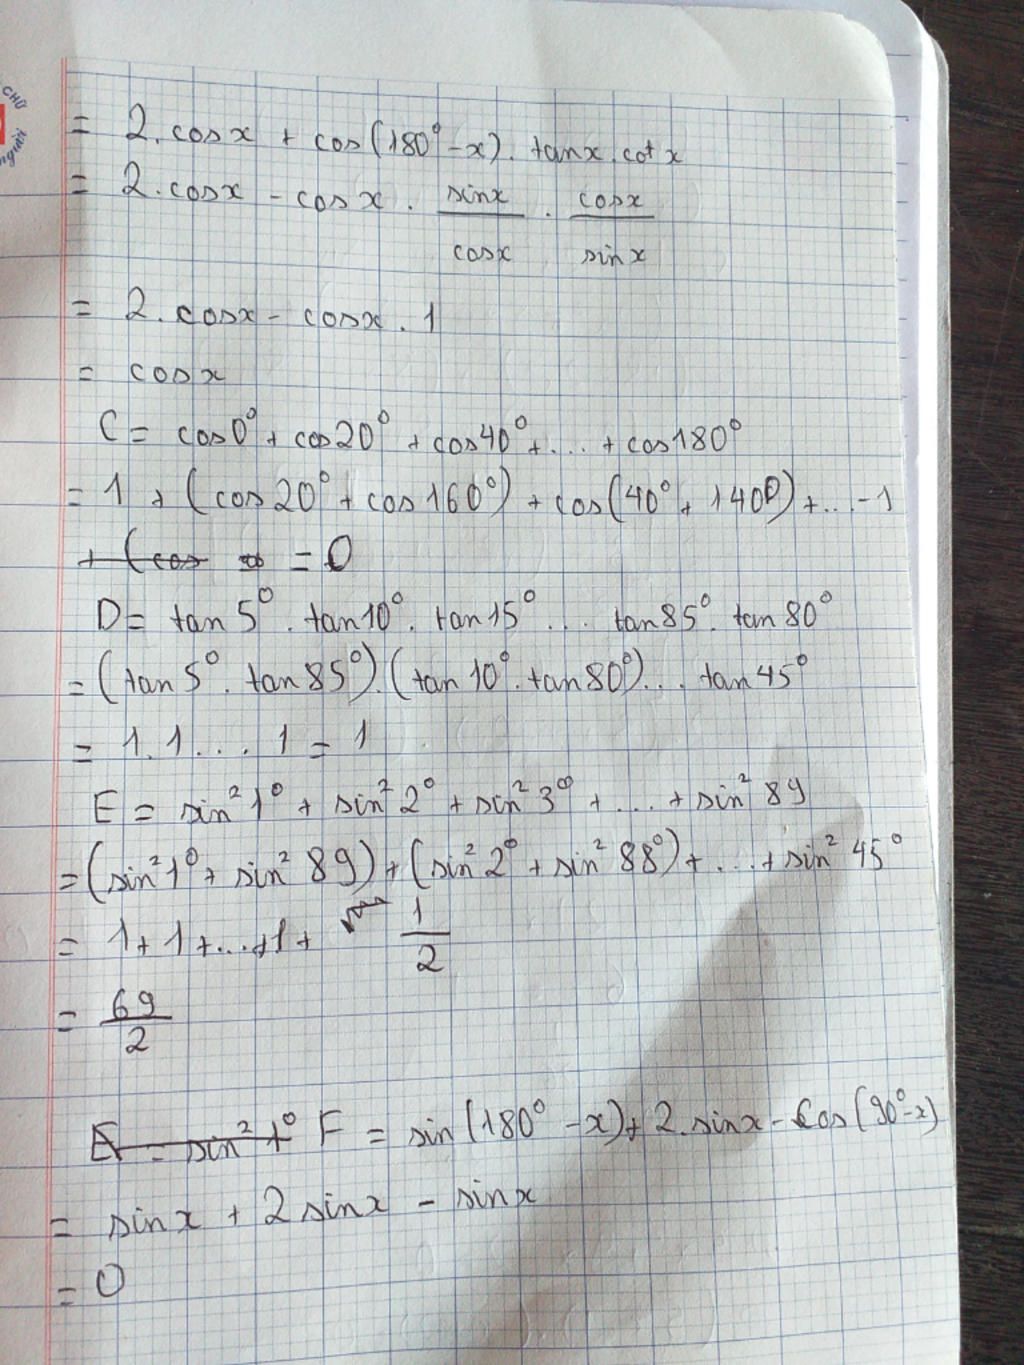 CHỮ
người
= 2.cosx + cos(180° - x). tanx.cotx
= 2.cosx - cosx . sinx/cosx . cosx/sinx
= 2.cosx - cosx . 1
= cosx
C = cos0° + cos20° + cos40° + ... + cos180°
= 1 + (cos20° + cos160°) + cos(40° + 140°) + ... - 1
+ (cos = 0
D = tan5° . tan10° . tan15° ... tan85° . tan80°
= (tan5° . tan85°).(tan10° . tan80°)... tan45°
= 1.1 ... 1 = 1
E = sin²1° + sin²2° + sin²3° + ... + sin²89
= (sin²1° + sin²89) + (sin²2° + sin²88°) + ... + sin²45°
= 1 + 1 + ... + 1 + 1/2
= 69/2
E = sin²1° F = sin(180° - x) + 2.sinx - cos(90° - x)
= sinx + 2sinx - sinx
= 0